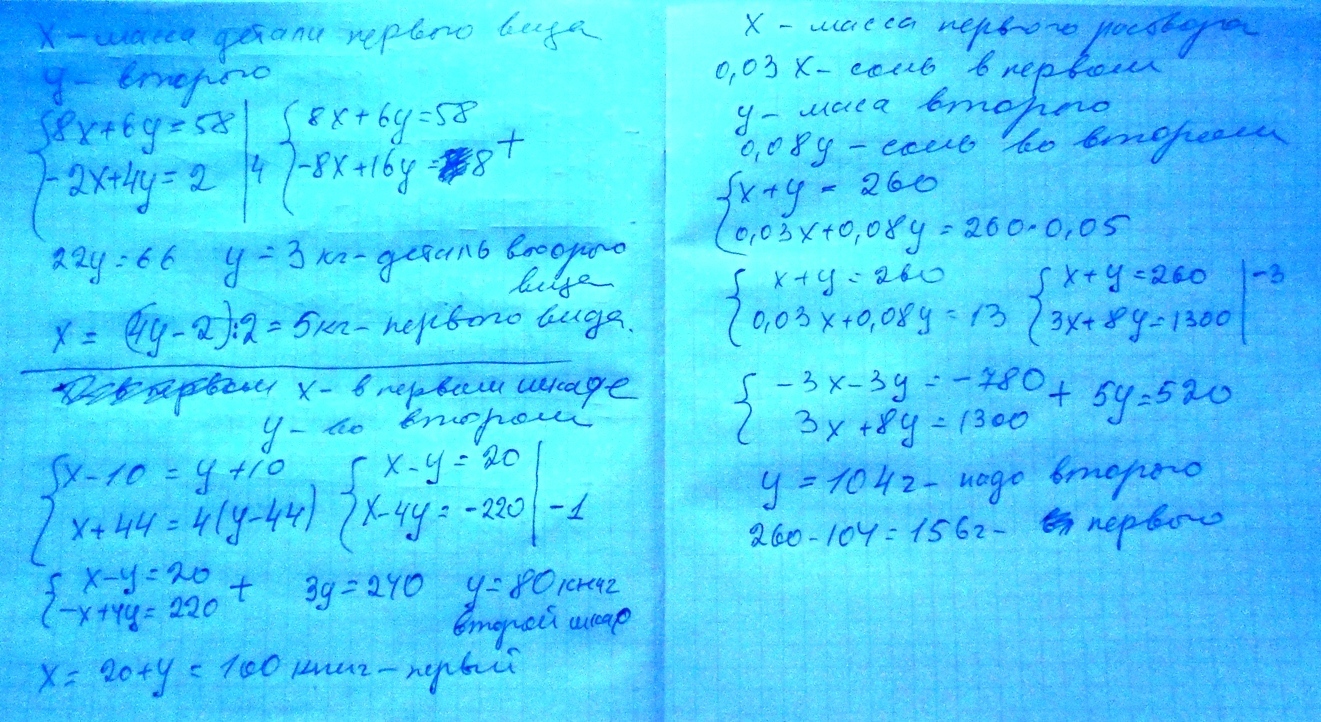 x - маса детали первого вида
y - второго
{8x+6y=58 | {8x+6y=58
{-2x+4y=2 | 4 {-8x+16y=8 +
22y=66 y=3 кг - деталь второго
вида
x = (4y-2):2=5кг - первого вида.
x - в первом шкафе
y - во втором
{x-10=y+10 {x-y=20
{x+44=4(y-44) {x-4y=-220 | -1
{x-y=20 + 3y=240 y=80 книг
{-x+4y=220 второй шкаф
x=20+y=100 книг - первый
x - масса первого раствора
0,03x - соль в первом
y - маса второго
0,08y - соль во втором
{x+y=260
{0,03x+0,08y=260·0,05
{x+y=260 {x+y=260 | -3
{0,03x+0,08y=13 {3x+8y=1300
{-3x-3y=-780 + 5y=520
{3x+8y=1300
y=104г - надо второго
260-104=156г - первого